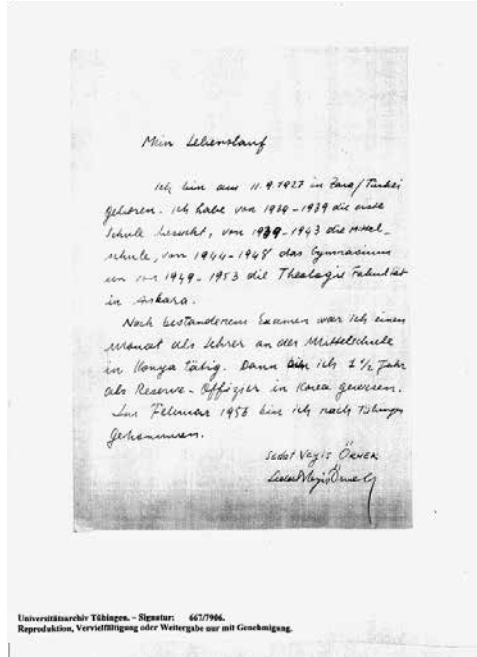 Mein Lebenslauf
Ich bin am 11.9.1927 in Zara/Türkei
geboren. Ich habe von 1934-1939 die erste
Schule besucht, von 1939-1943 die Mittel-
schule, von 1944-1948 das Gymnasium
un von 1949-1953 die Theologie Fakultät
in Ankara.
Nach bestandenem Examen war ich einen
Monat als Lehrer an der Mittelschule
in Konya tätig. Dann bin ich 1 1/2 Jahr
als Reserve-Offizier in Korea gewesen.
Im Februar 1956 bin ich nach Tübingen
gekommen.
Sedat Veyis ÖRNEK
Sedat Veyis Örnek
Universitätsarchiv Tübingen. - Signatur: 667/7906.
Reproduktion, Vervielfältigung oder Weitergabe nur mit Genehmigung.